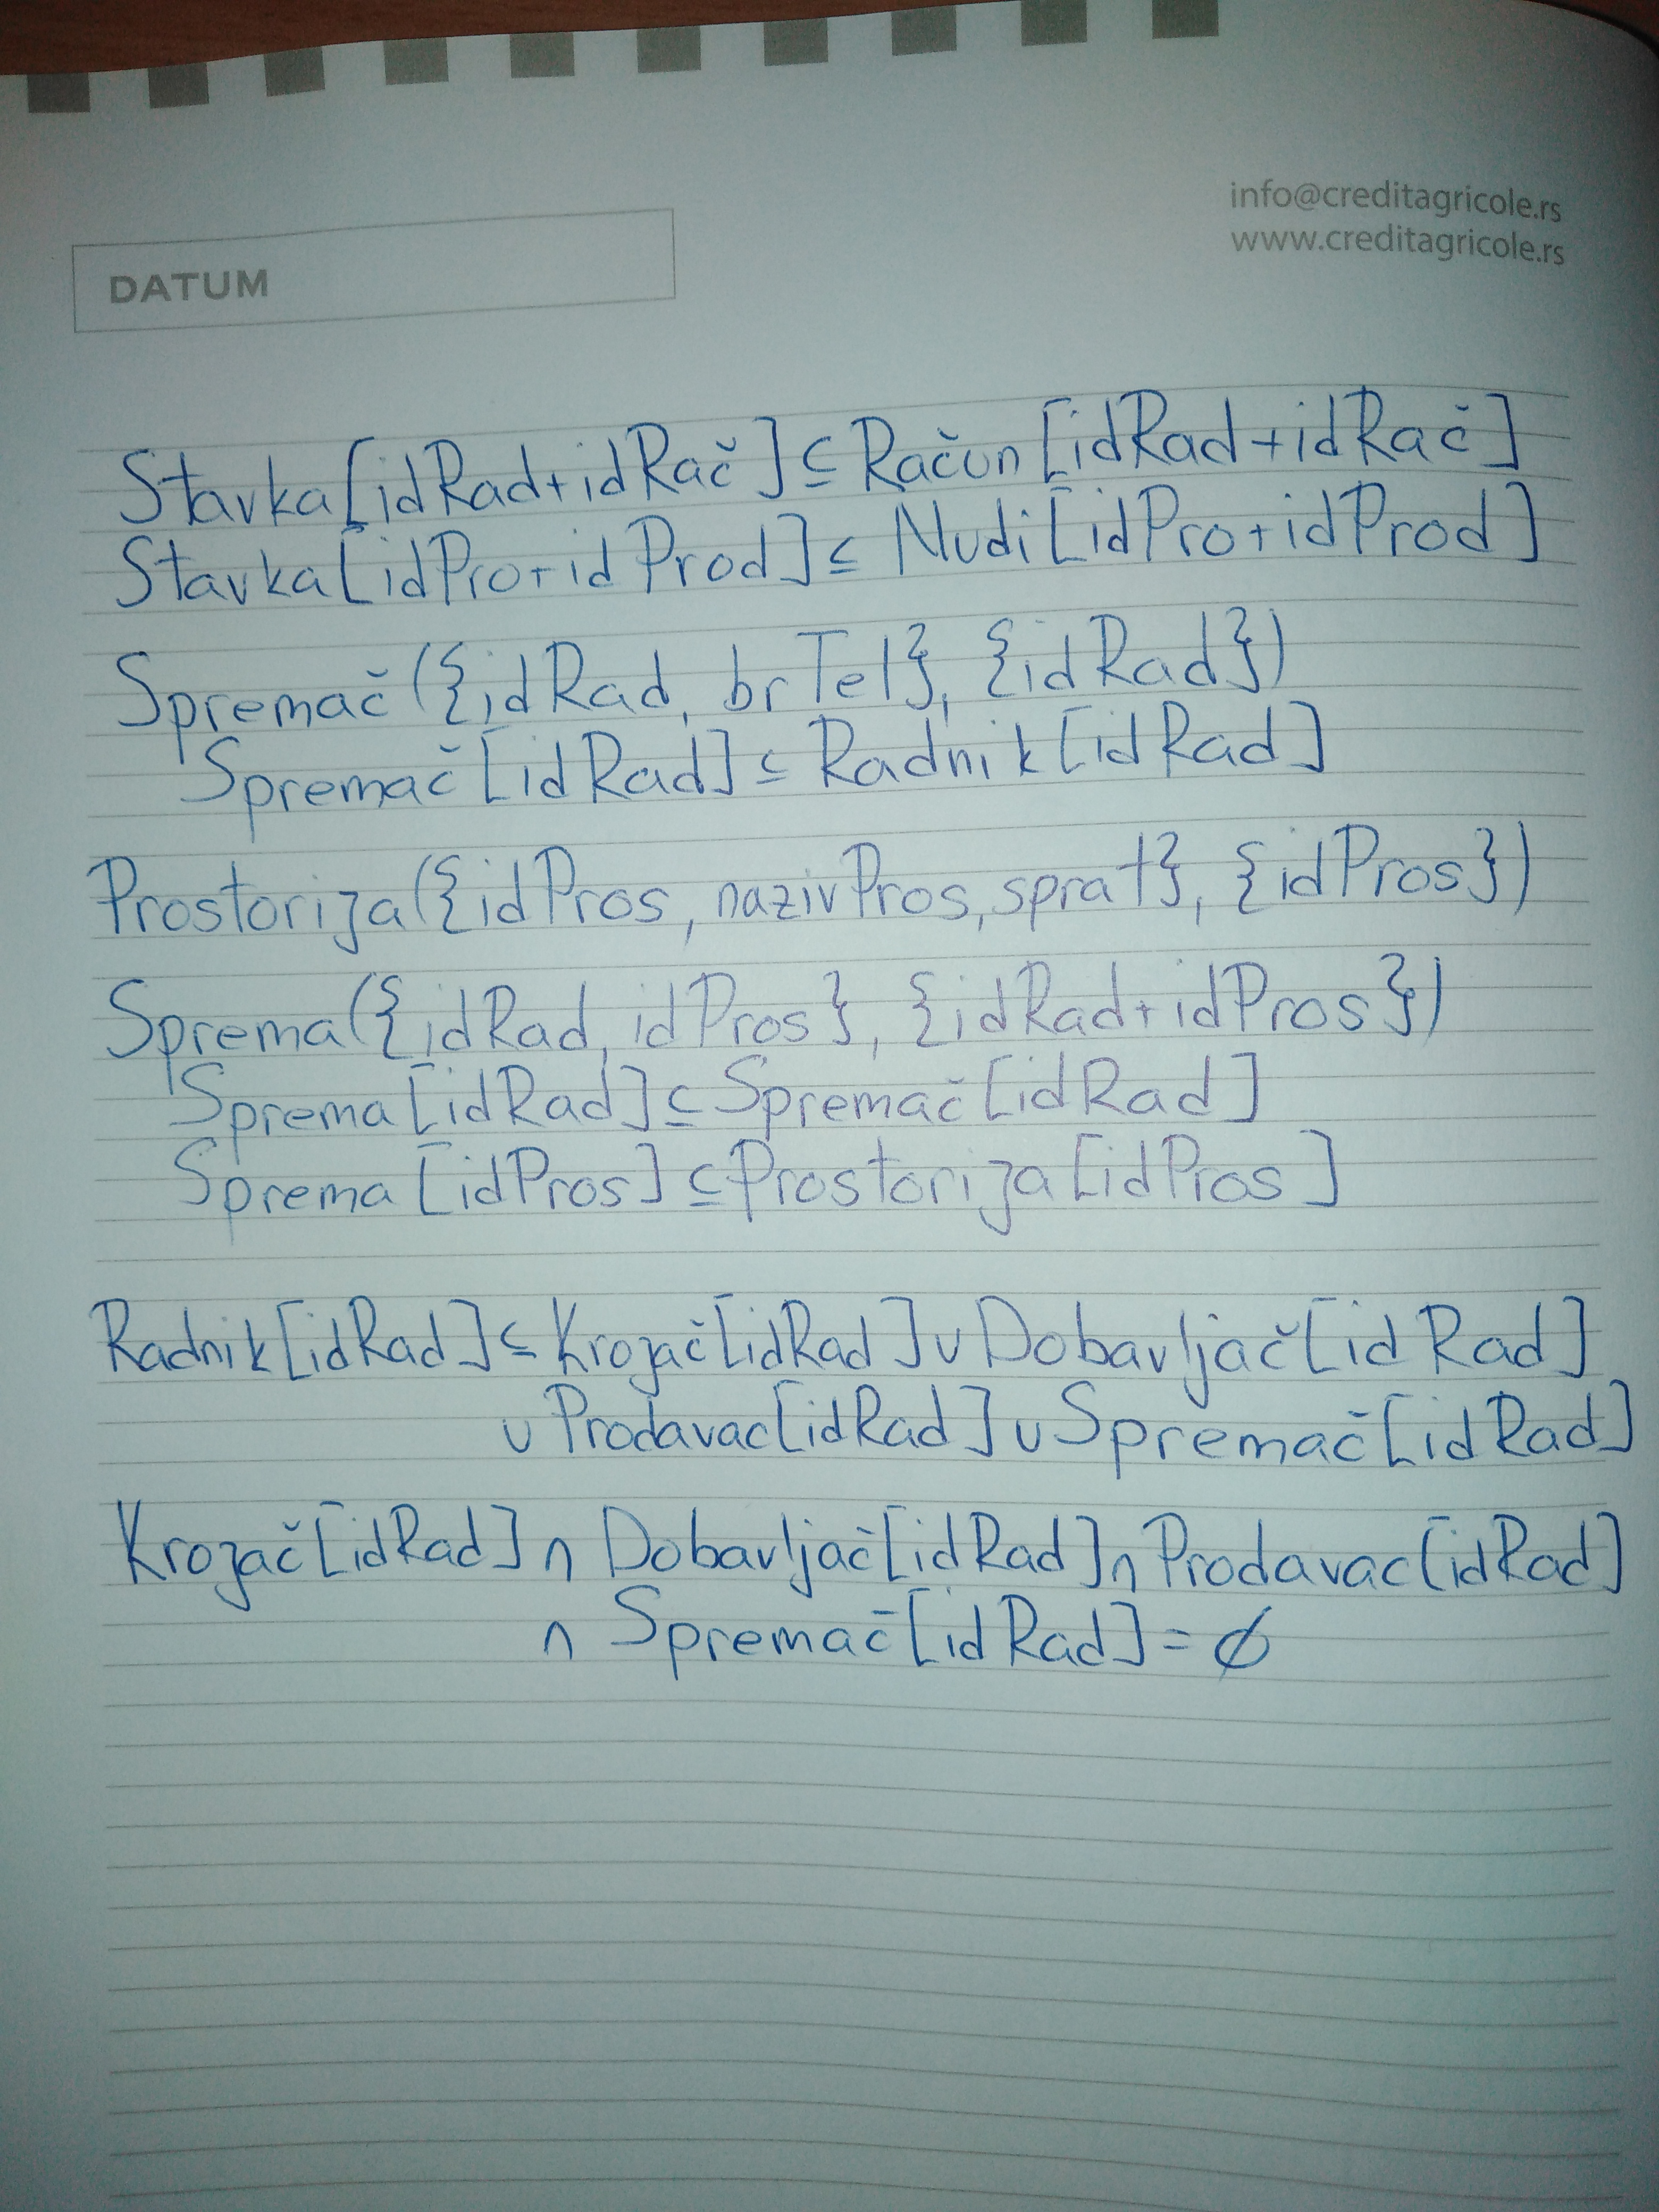 info@creditagricole.rs
www.creditagricole.rs
DATUM
Stavka[idRad+idRač]⊆Račun[idRad+idRač]
Stavka[idPro+idProd]⊆ Nudi[idPro+idProd]
Spremač({idRad, brTel}, {idRad})
Spremač[idRad]⊆ Radnik[idRad]
Prostorija({idPros, nazivPros, sprat}, {idPros})
Sprema({idRad, idPros}, {idRad+idPros})
Sprema[idRad]⊆Spremač[idRad]
Sprema[idPros]⊆Prostorija[idPros]
Radnik[idRad]⊆ Krojač[idRad]∪Dobavljač[idRad]
∪ Prodavac[idRad]∪Spremač[idRad]
Krojač[idRad]∩ Dobavljač[idRad]∩Prodavac[idRad]
∩ Spremač[idRad]=∅